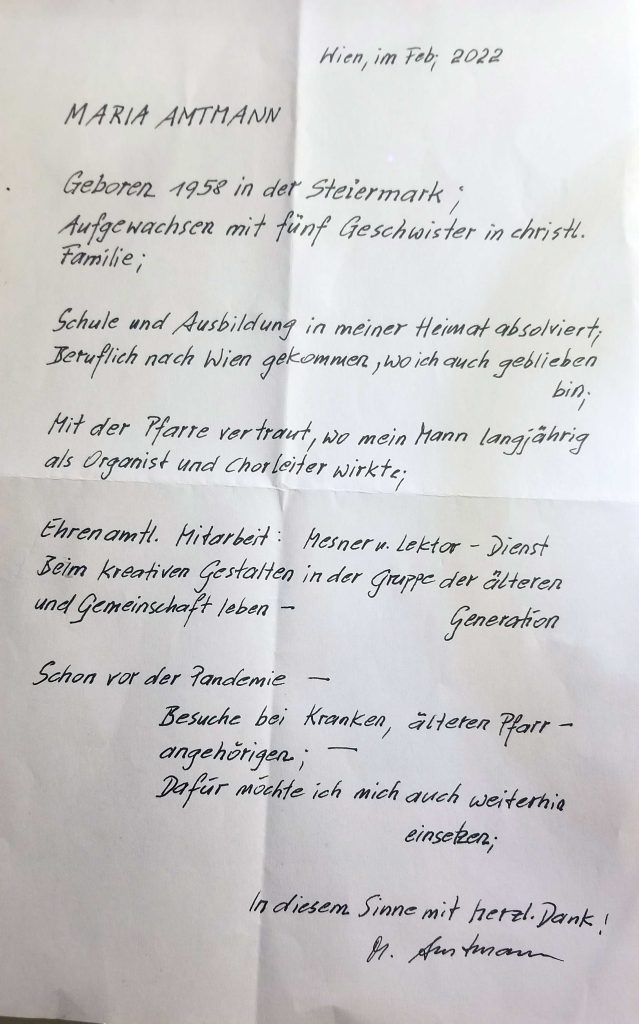 Wien, im Feb; 2022
MARIA AMTMANN
Geboren 1958 in der Steiermark;
Aufgewachsen mit fünf Geschwister in christl.
Familie;
Schule und Ausbildung in meiner Heimat absolviert;
Beruflich nach Wien gekommen, wo ich auch geblieben
bin;
Mit der Pfarre vertraut, wo mein Mann langjährig
als Organist und Chorleiter wirkte;
Ehrenamtl. Mitarbeit: Mesner u. Lektor - Dienst
Beim kreativen Gestalten in der Gruppe der älteren
und Gemeinschaft leben - Generation
Schon vor der Pandemie —
Besuche bei Kranken, älteren Pfarr-
angehörigen; —
Dafür möchte ich mich auch weiterhin
einsetzen;
In diesem Sinne mit herzl. Dank!
M. Amtmann